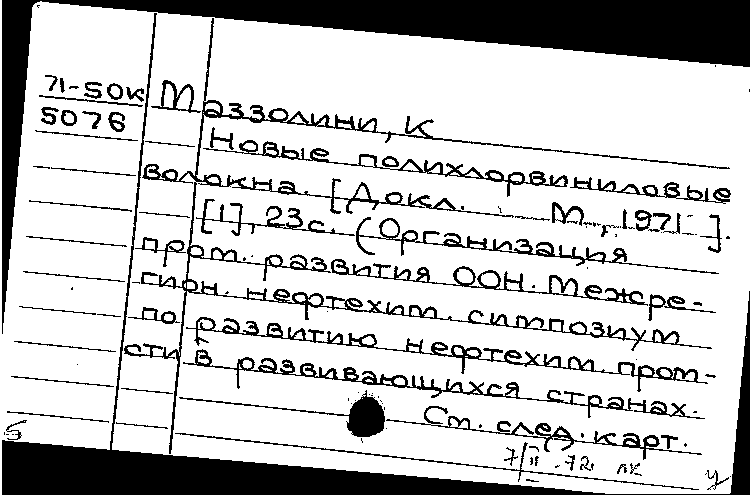 71-50К Маззолини, К
5076
Новые полихлорвиниловые
волокна. [Докл. М., 1971].
[1], 23с. (Организация
пром. развития ООН. Межре-
гион. нефтехим. симпозиум
по развитию нефтехим. пром-
сти в развивающихся странах.
См. след. карт.
7/II-72 лк
5